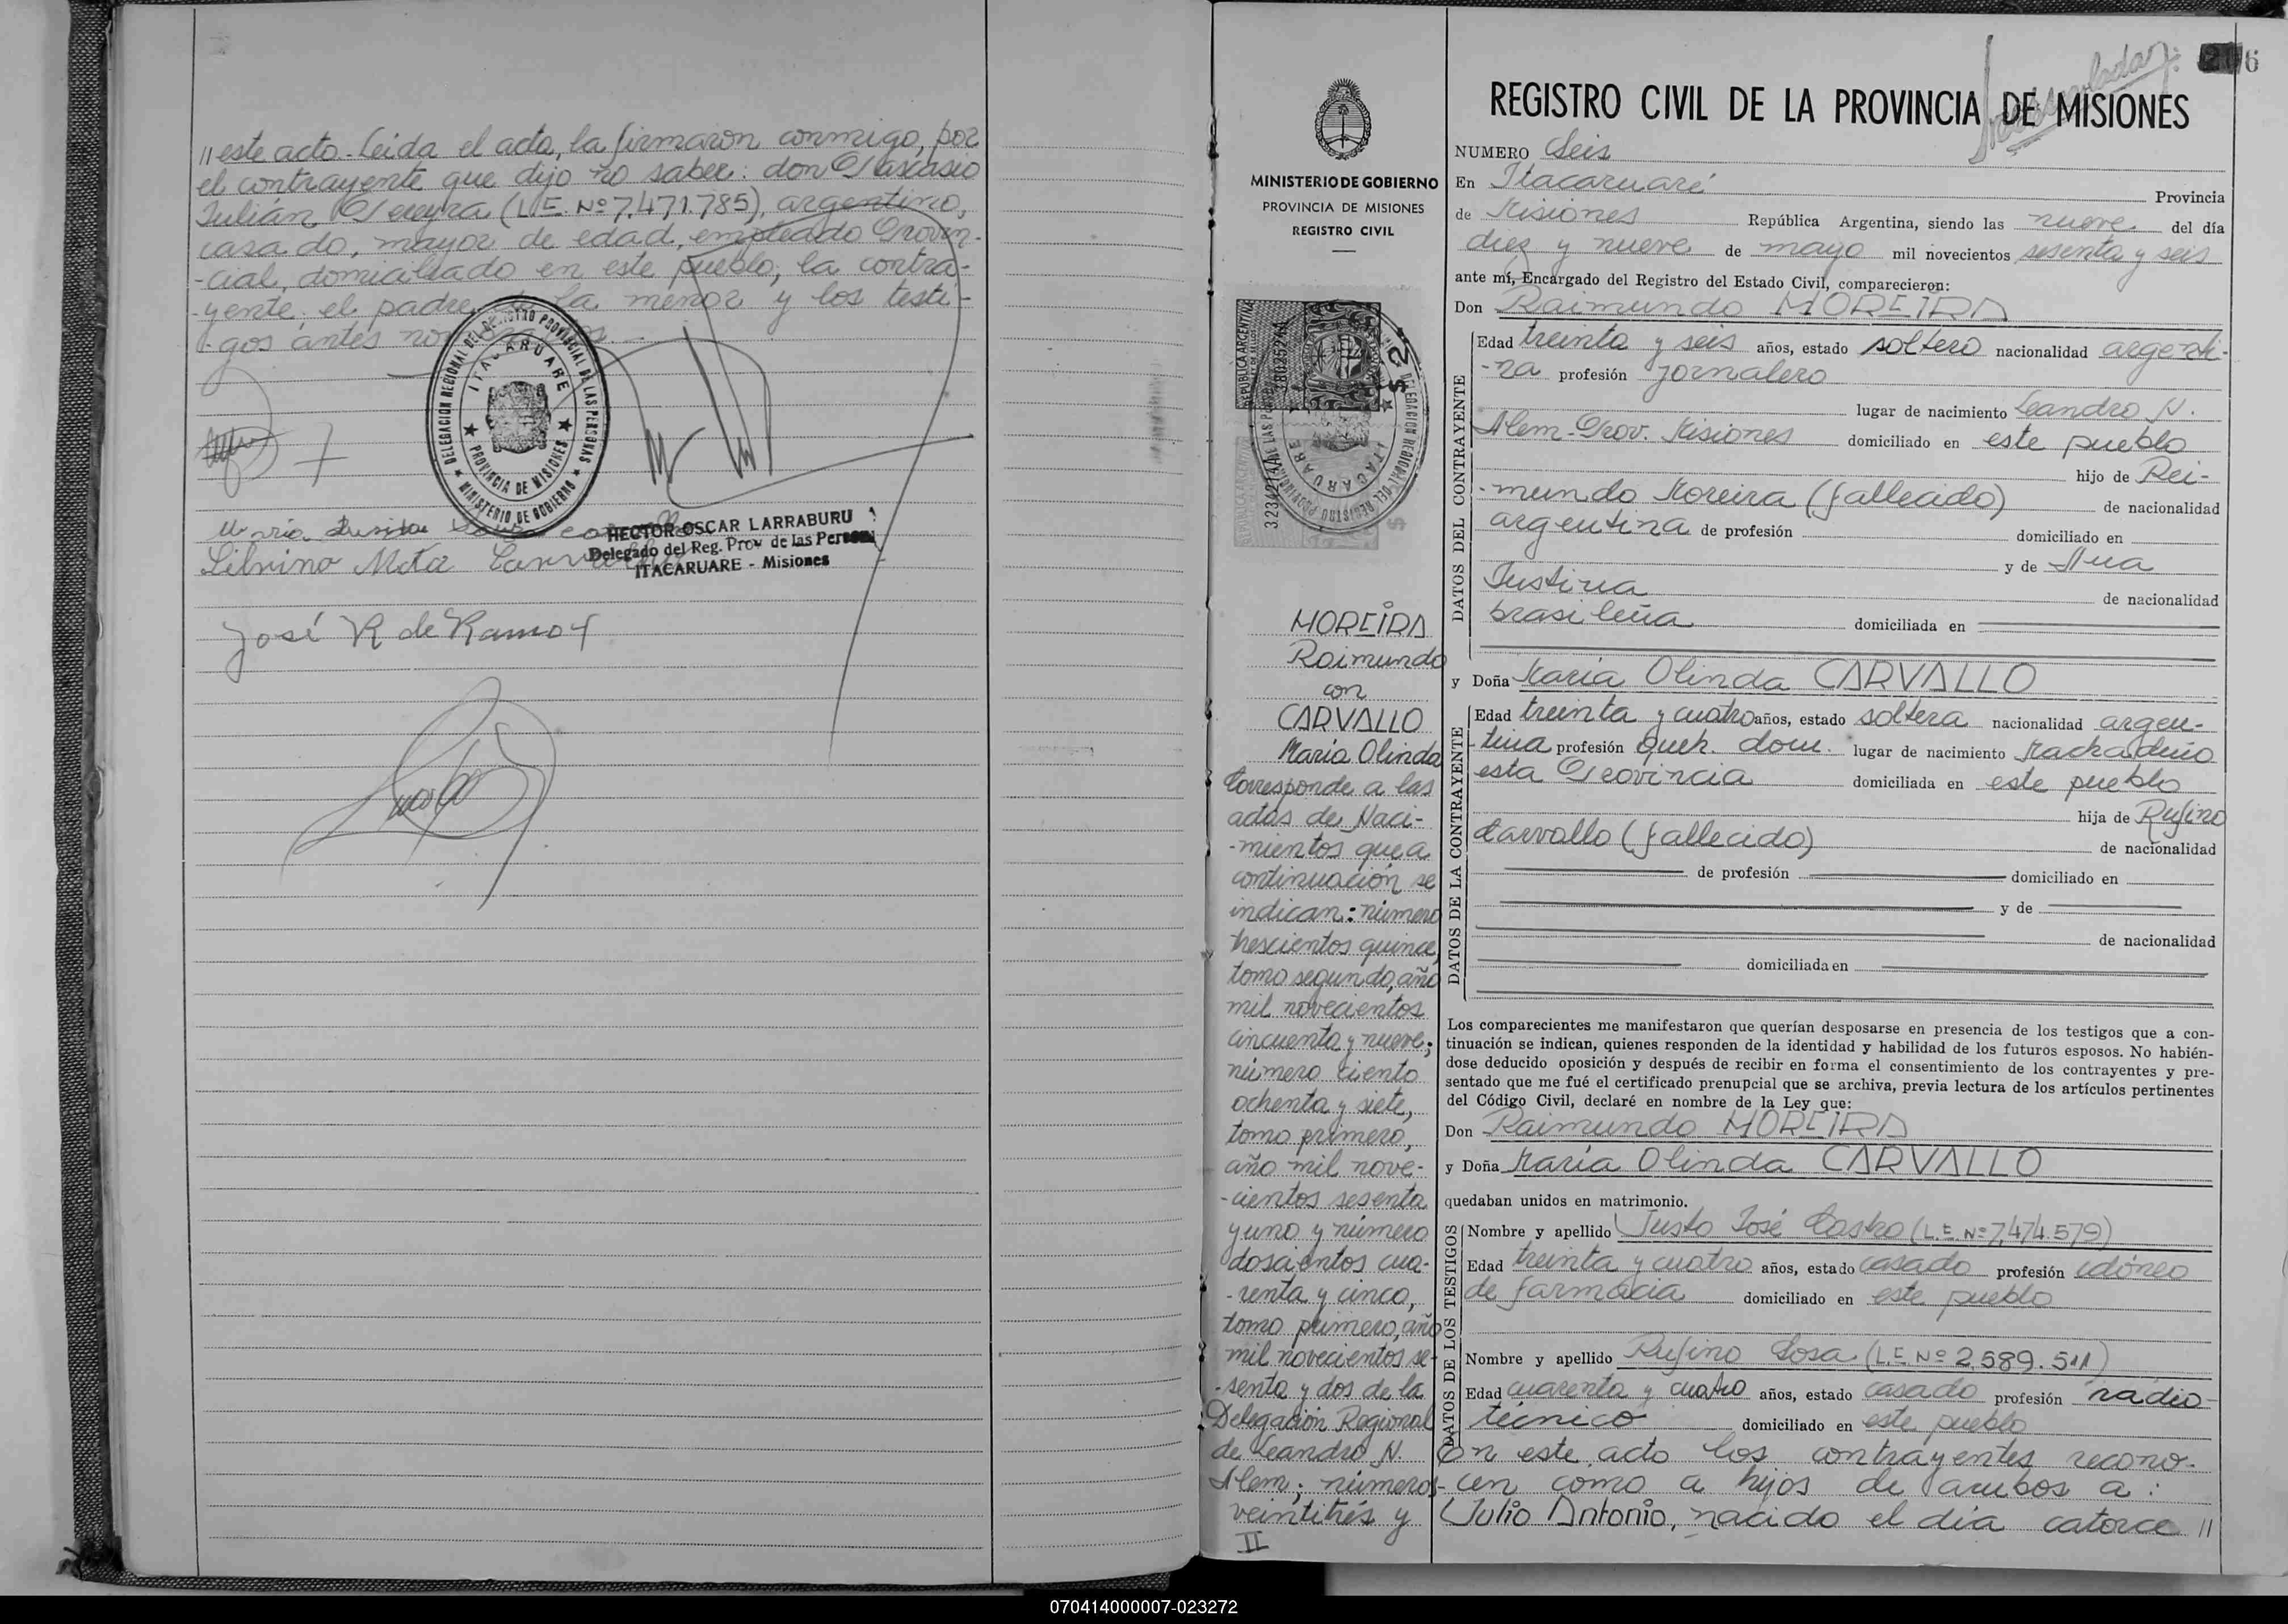 // este acto.- Leida el acta, la firmaron conmigo, por
el contrayente que dijo no saber: don Pascasio
Julián Pereyra (L.E. Nº 7.471.785), argentino,
casado, mayor de edad, empleado Provin-
-cial, domiciliado en este pueblo; la contra-
-yente, el padre de la menor y los testi-
gos antes
DELEGACION REGIONAL DEL REGISTRO PROVINCIAL DE LAS PERSONAS
ITACARUARE
PROVINCIA DE MISIONES
MINISTERIO DE GOBIERNO
HECTOR OSCAR LARRABURU
Delegado del Reg. Prov de las Person
ITACARUARE - Misiones
José R de Ramos
6
REGISTRO CIVIL DE LA PROVINCIA DE MISIONES
MINISTERIO DE GOBIERNO
PROVINCIA DE MISIONES
REGISTRO CIVIL
REPUBLICA ARGENTINA
MOREIRA
Raimundo
con
CARVALLO
María Olinda
Corresponde a las
actas de Naci-
-mientos que a
continuación se
indican: número
trescientos quince,
tomo segundo, año
mil novecientos
cincuenta y nueve;
número ciento
ochenta y siete,
tomo primero,
año mil nove-
-cientos sesenta
y uno y número
doscientos cua-
-renta y cinco,
tomo primero, año
mil novecientos se-
-senta y dos de la
Delegación Regional
de Leandro N.
Alem; números
veintitrés y
II
NUMERO Seis
En Itacaruaré Provincia
de Misiones República Argentina, siendo las nueve del día
diez y nueve de mayo mil novecientos sesenta y seis
ante mí, Encargado del Registro del Estado Civil, comparecieron:
Don Raimundo MOREIRA
DATOS DEL CONTRAYENTE
Edad treinta y seis años, estado soltero nacionalidad argenti-
-na profesión jornalero
lugar de nacimiento Leandro N.
Alem-Prov. Misiones domiciliado en este pueblo
hijo de Rei-
-mundo Moreira (fallecido) de nacionalidad
argentina de profesión domiciliado en
y de Ana
Justina de nacionalidad
brasileña domiciliada en
y Doña María Olinda CARVALLO
DATOS DE LA CONTRAYENTE
Edad treinta y cuatro años, estado soltera nacionalidad argen-
-tina profesión queh. dom. lugar de nacimiento Machadiño
esta Provincia domiciliada en este pueblo
hija de Rufino
Carvallo (fallecido) de nacionalidad
de profesión domiciliado en
y de
de nacionalidad
domiciliada en
Los comparecientes me manifestaron que querían desposarse en presencia de los testigos que a con-
tinuación se indican, quienes responden de la identidad y habilidad de los futuros esposos. No habién-
dose deducido oposición y después de recibir en forma el consentimiento de los contrayentes y pre-
sentado que me fué el certificado prenupcial que se archiva, previa lectura de los artículos pertinentes
del Código Civil, declaré en nombre de la Ley que:
Don Raimundo MOREIRA
y Doña María Olinda CARVALLO
quedaban unidos en matrimonio.
DATOS DE LOS TESTIGOS
Nombre y apellido Justo José Castro (L.E. Nº 7.474.579)
Edad treinta y cuatro años, estado casado profesión idóneo
de farmacia domiciliado en este pueblo
Nombre y apellido Rufino Sosa (L.E. Nº 2.589.511)
Edad cuarenta y cuatro años, estado casado profesión radio-
técnico domiciliado en este pueblo
En este acto los contrayentes recono-
-cen como a hijos de ambos a:
Julio Antonio, nacido el día catorce //
070414000007-023272